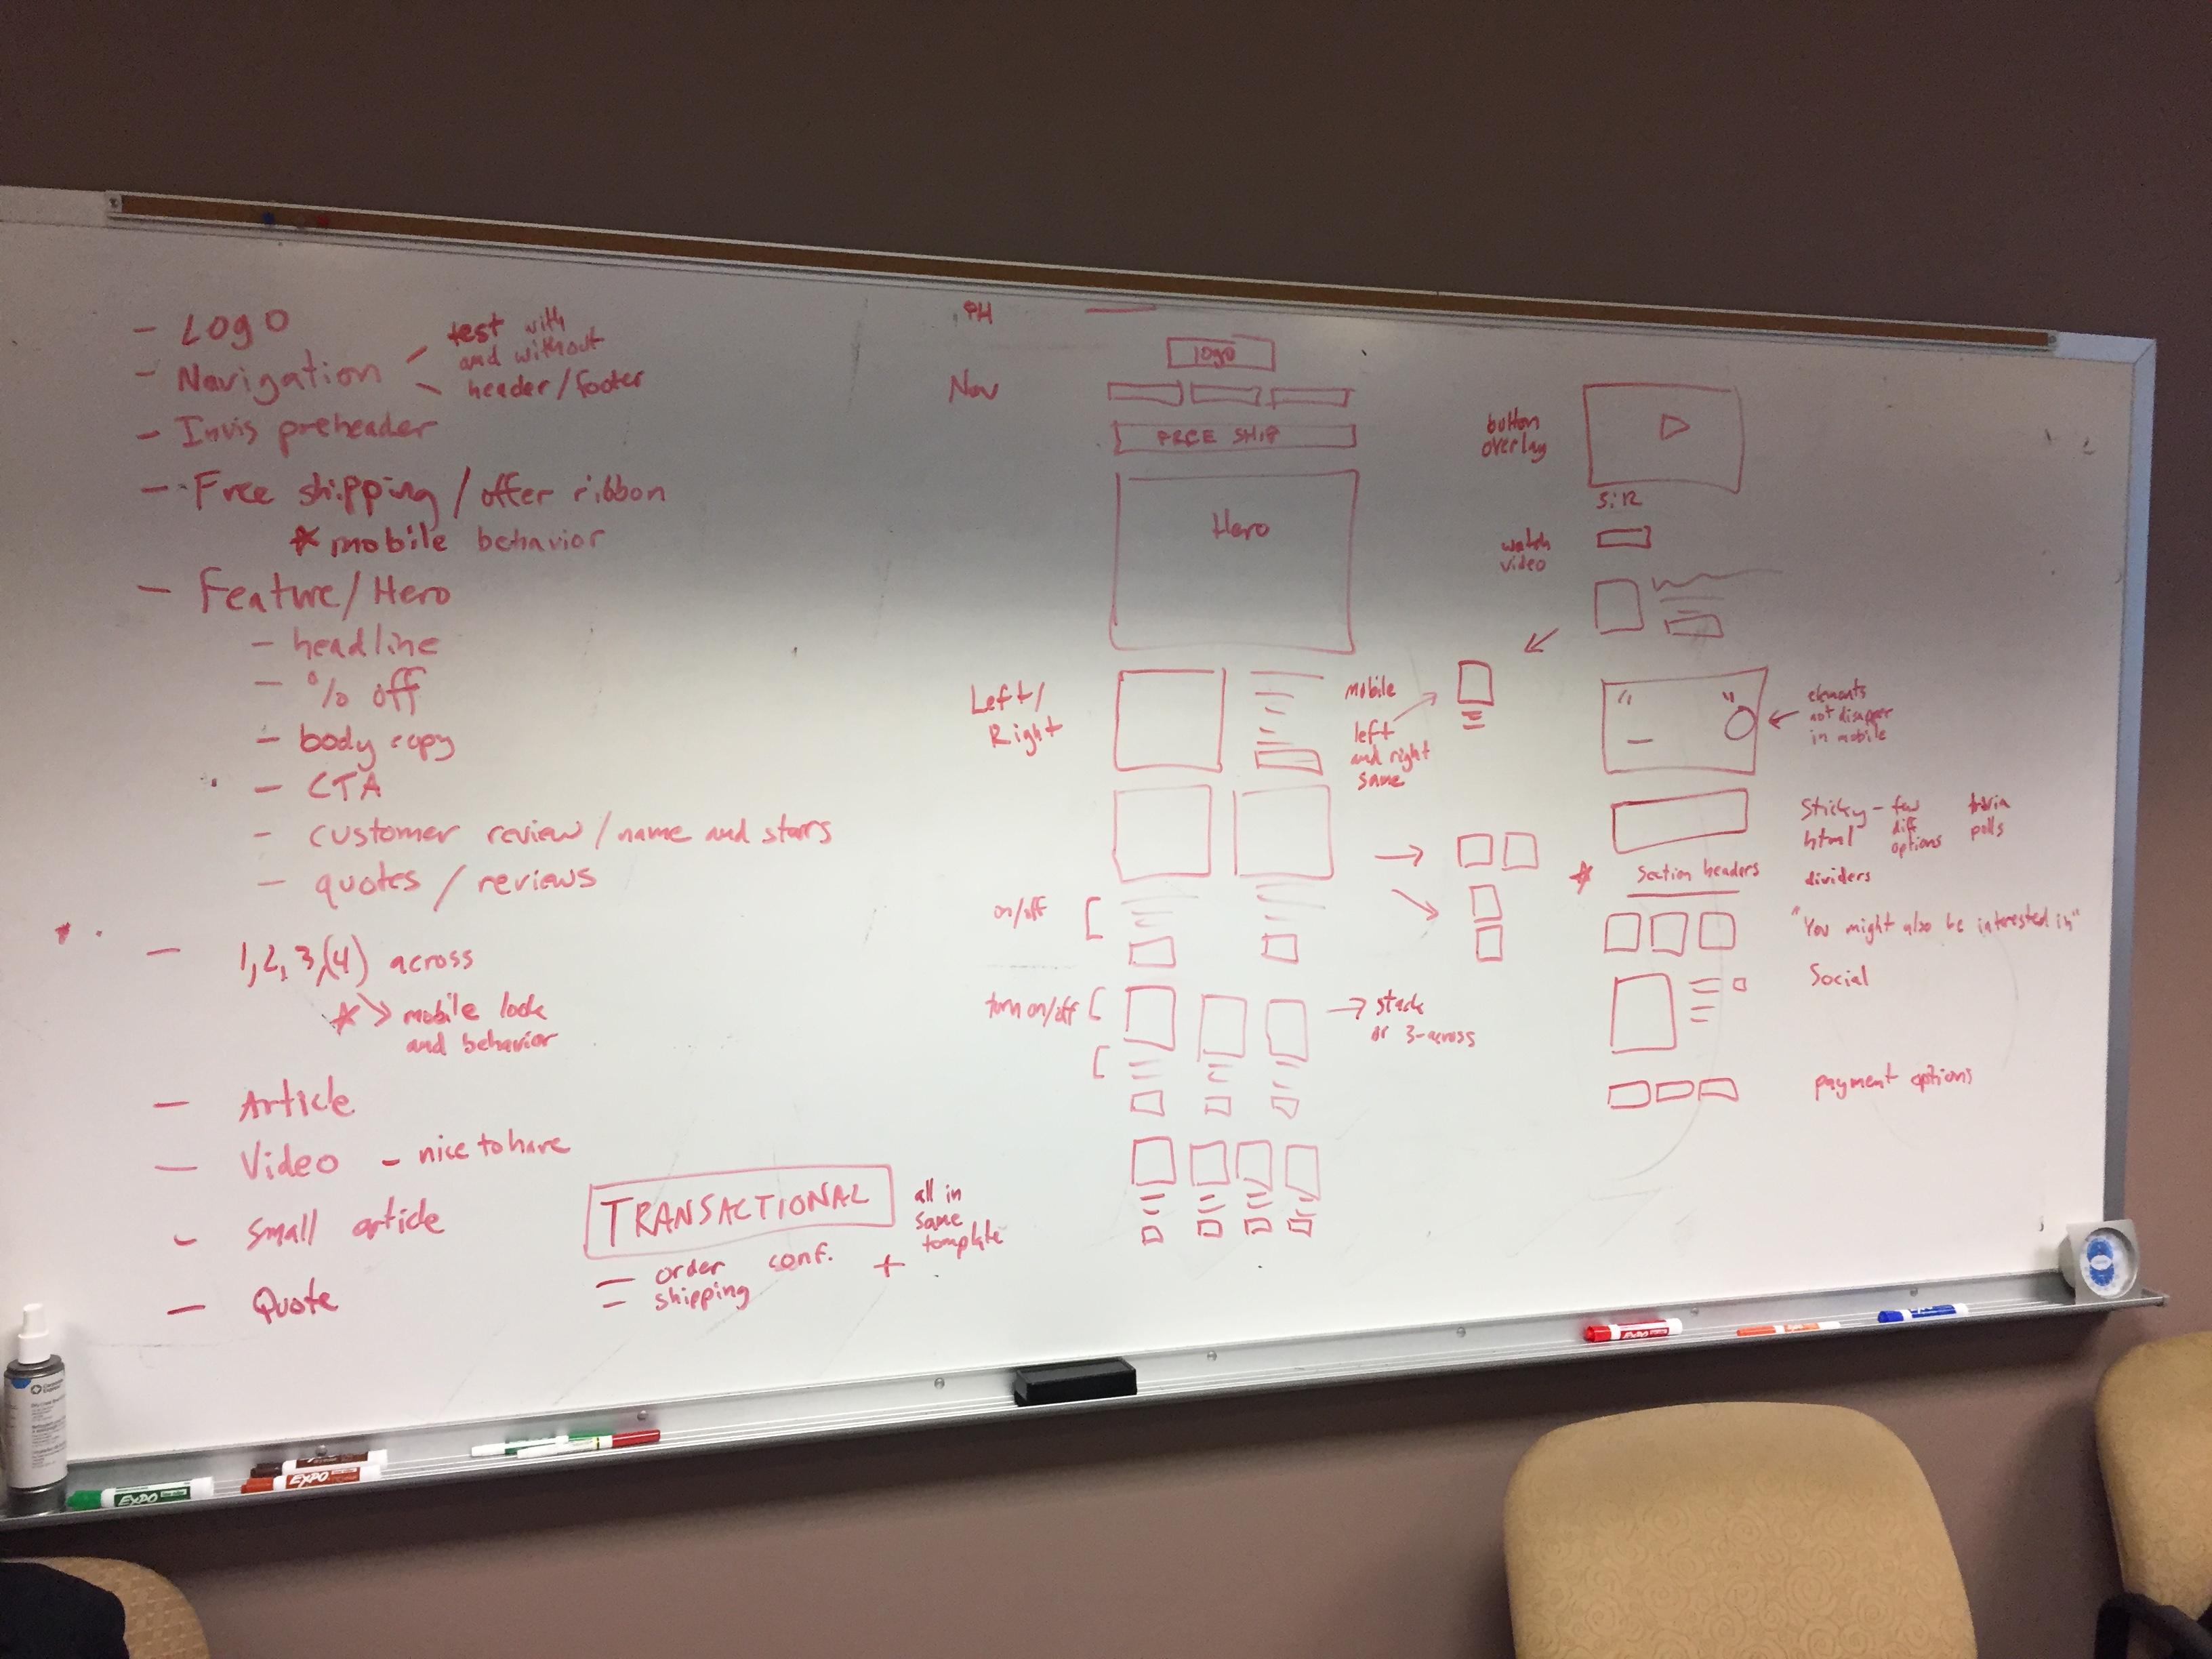 - Logo
- Navigation
test with
and without
header/footer
- Invis preheader
- Free shipping / offer ribbon
* mobile behavior
- Feature/Hero
- headline
- % off
- body copy
- CTA
- customer review / name and stars
- quotes / reviews
- 1, 2, 3, (4) across
* > mobile look
and behavior
- Article
- Video - nice to have
- Small article
- Quote
TRANSACTIONAL
- order conf.
- shipping
+
all in
same
template
PH
logo
Nav
FREE SHIP
Hero
Left/
Right
mobile
left
and right
same
on/off
turn on/off
→ stack
or 3-across
button
overlay
watch
video
" "
elements
not disapper
in mobile
Sticky - few
html diff
options
trivia
polls
* Section headers
dividers
"You might also be interested in"
Social
payment options
EXPO
EXPO
EXPO